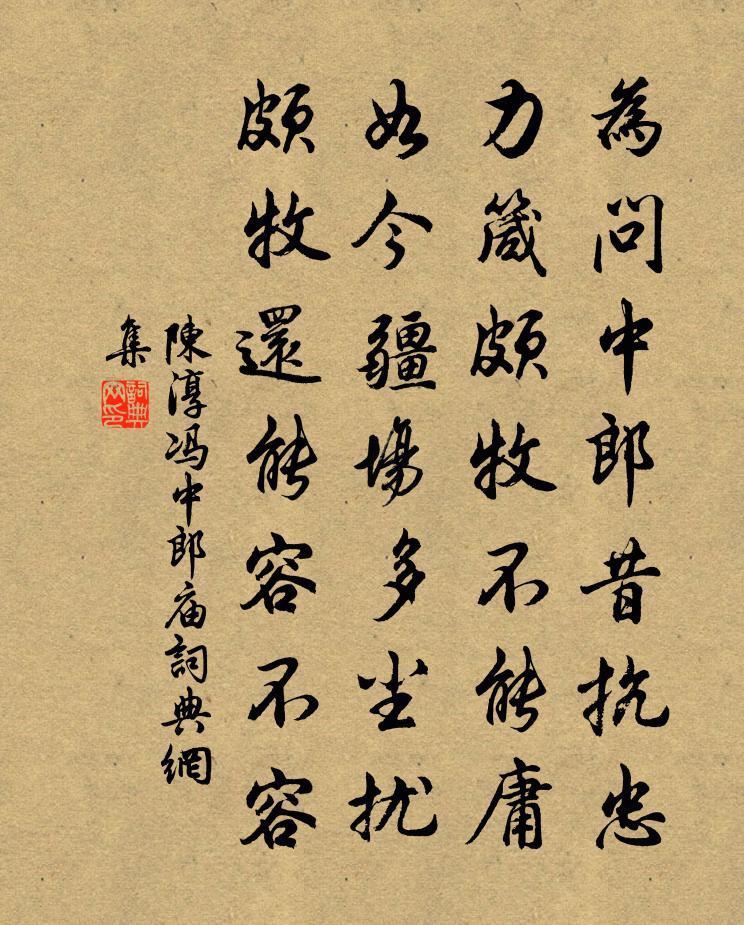 為問中郎昔抗忠
力箴頗牧不能庸
如今疆場多尘扰
頗牧還能容不容
陳淳冯中郎庙詞典網
集
詞典网印